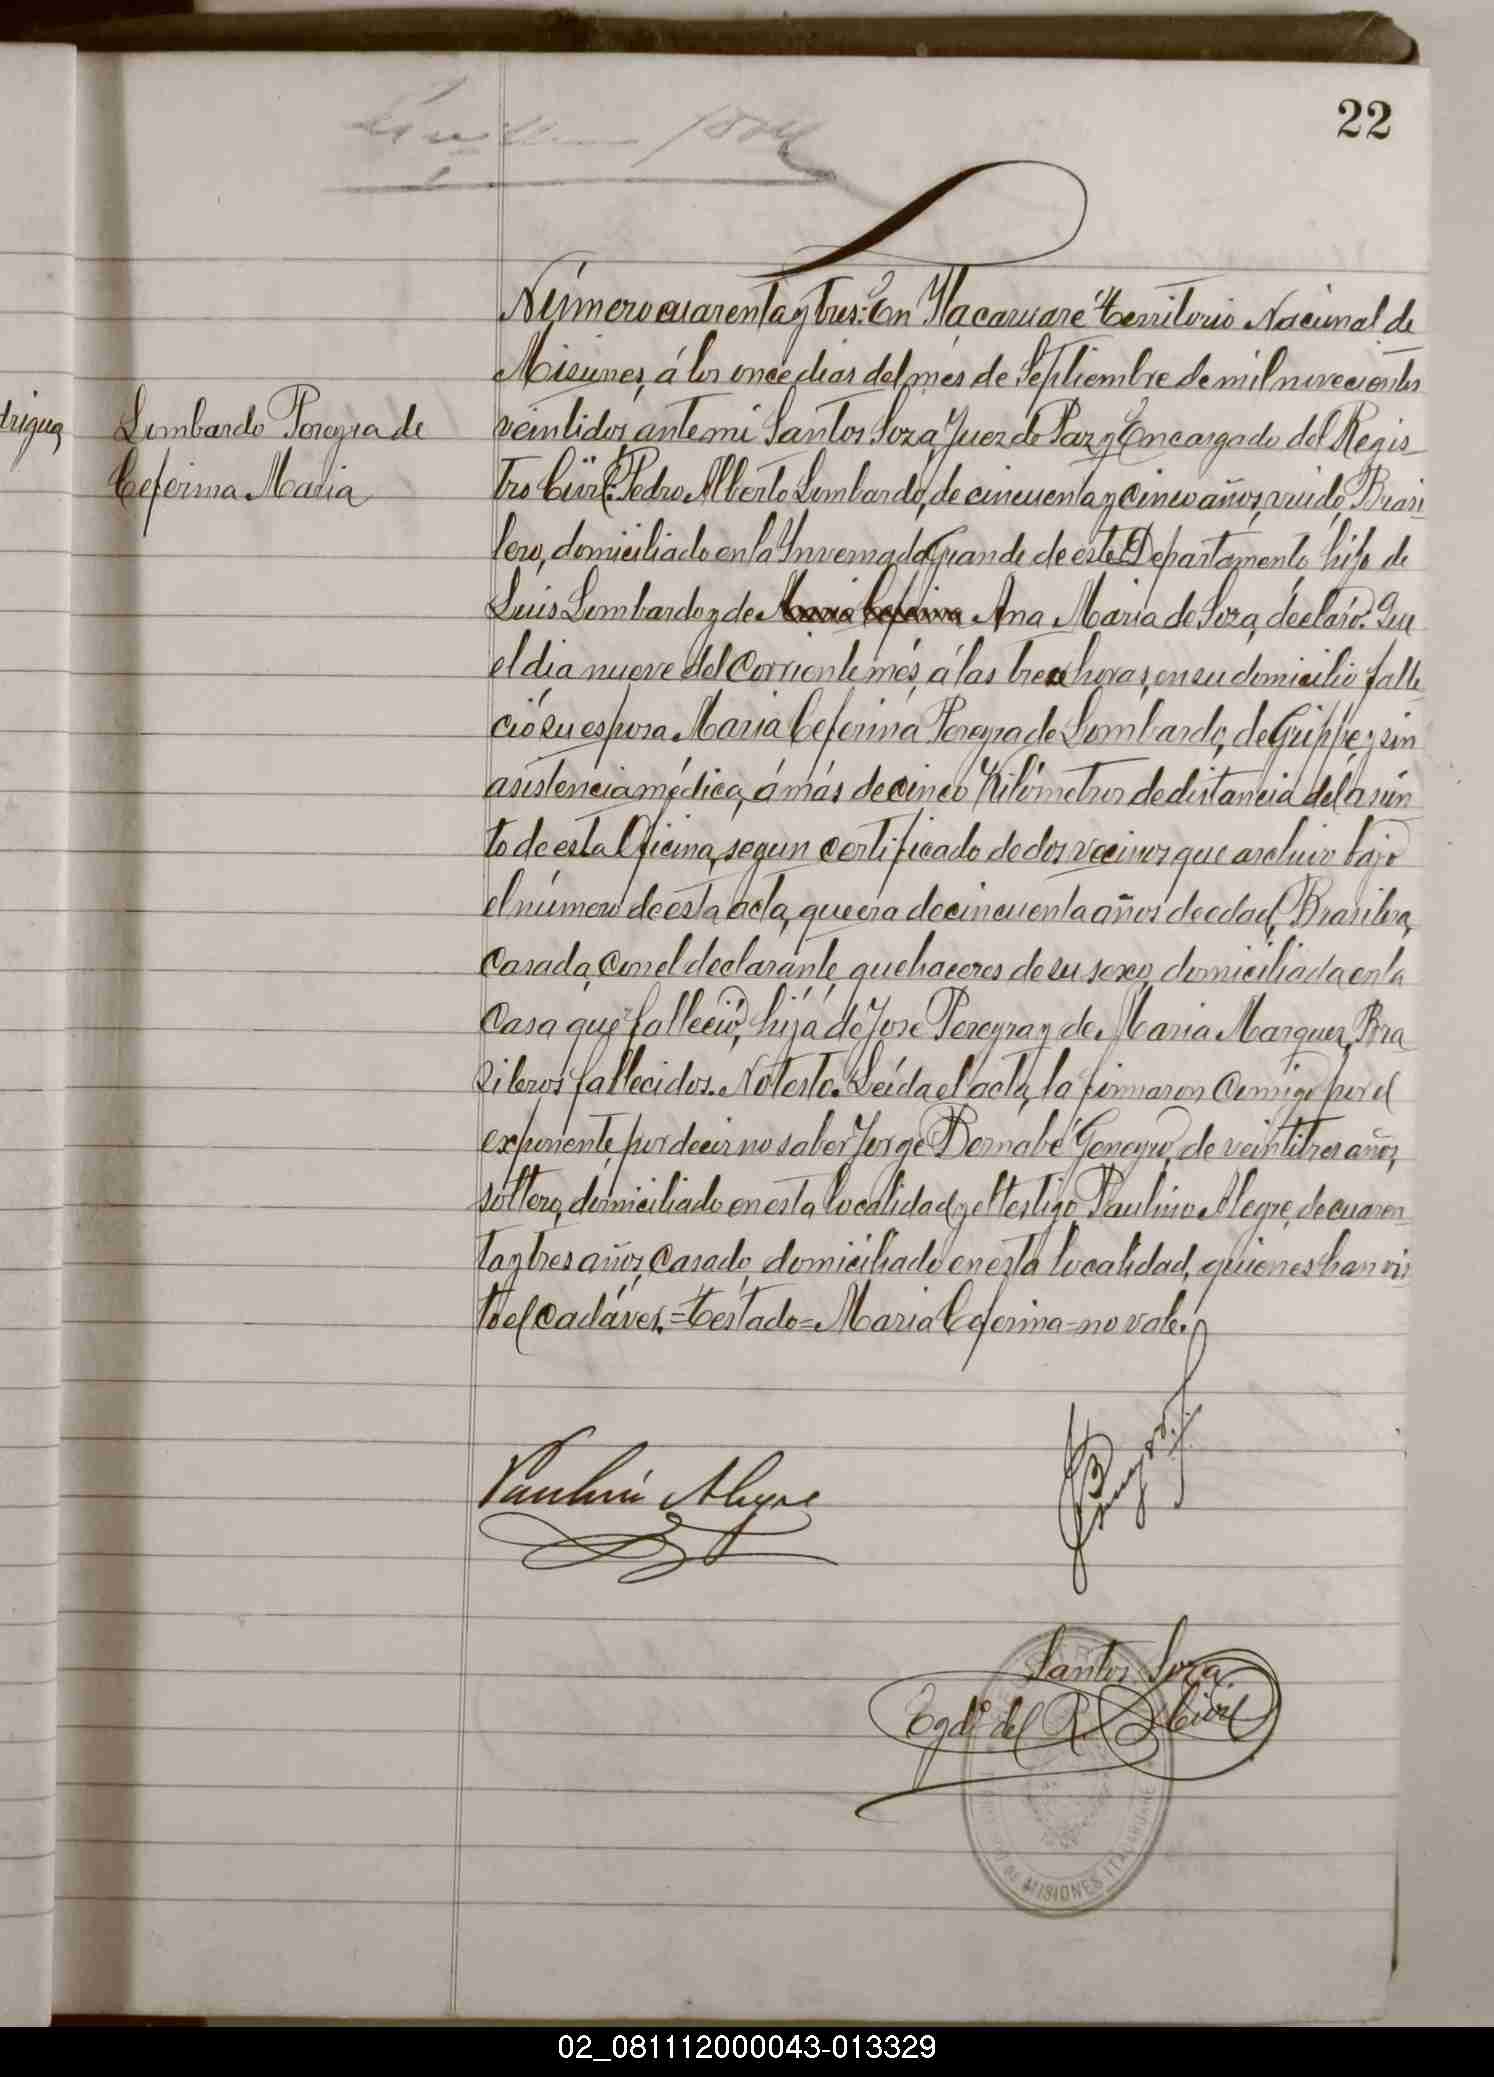 22
Número cuarenta y tres: En Itacaruaré Territorio Nacional de
Misiones, á los once dias del més de Septiembre de mil novecientos
veintidos, ante mi Santos Soza, Juez de Paz y Encargado del Regis
tro Civil: Pedro Alberto Lombardo, de cincuenta y cinco años, viudo, Brasi
lero, domiciliado en la Invernada Grande de este Departamento hijo de
Luis Lombardo y de Maria Ceferina Ana Maria de Soza, declaró: Que
el dia nueve del corriente més, á las trece horas, en su domicilio falle
ció su esposa Maria Ceferina Pereyra de Lombardo, de Grippe y sin
asistencia médica, á más de cinco Kilómetros de distancia del asien
to de esta Oficina, segun certificado de dos vecinos que archivo bajo
el número de esta acta, que era de cincuenta años de edad, Brasilera,
casada, con el declarante, quehaceres de su sexo, domiciliada en la
casa que falleció, hija de José Pereyra y de Maria Marquez, Bra
zileros fallecidos. No testo. Leída el acta, la firmaron conmigo por el
exponente, por decir no saber Jorge Bernabé Goneyro, de veintitres años,
soltero, domiciliado en esta localidad y el testigo Paulino Alegre, de cuaren
ta y tres años, casado, domiciliado en esta localidad, quienes han vis
to el cadáver. = Testado = Maria Ceferina = no vale.
driguez
Lombardo Pereyra de
Ceferina Maria
Paulino Alegre
Santos Soza
Egdo del R. Civil
MISIONES ITACARUARE
02_081112000043-013329